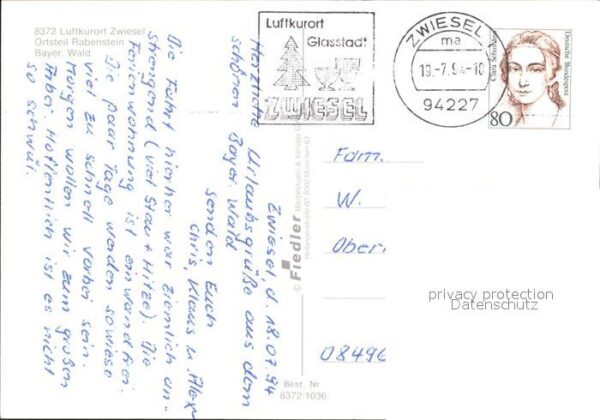 8372 Luftkurort Zwiesel
Ortsteil Rabenstein
Bayer. Wald
Luftkurort
Glasstadt
ZWIESEL
ZWIESEL
ma
19.-7.94-18
94227
Clara Schumann
Deutsche Bundespost
80
Zwiesel d. 18.07.94
Herzliche Urlaubsgrüße aus dem
schönen Bayer. Wald
senden Euch
Chris, Klaus u. Alex
Die Fahrt hierher war ziemlich an-
strengend (viel Stau + Hitze). Die
Ferienwohnung ist einwandfrei.
Die paar Tage werden sowieso
viel zu schnell vorbei sein.
Morgen wollen wir zum großen
Arber. Hoffentlich ist es nicht
so schwül.
© Fiedler
Fam.
W.
Ober
08496
privacy protection
Datenschutz
Best. Nr
8372 1036